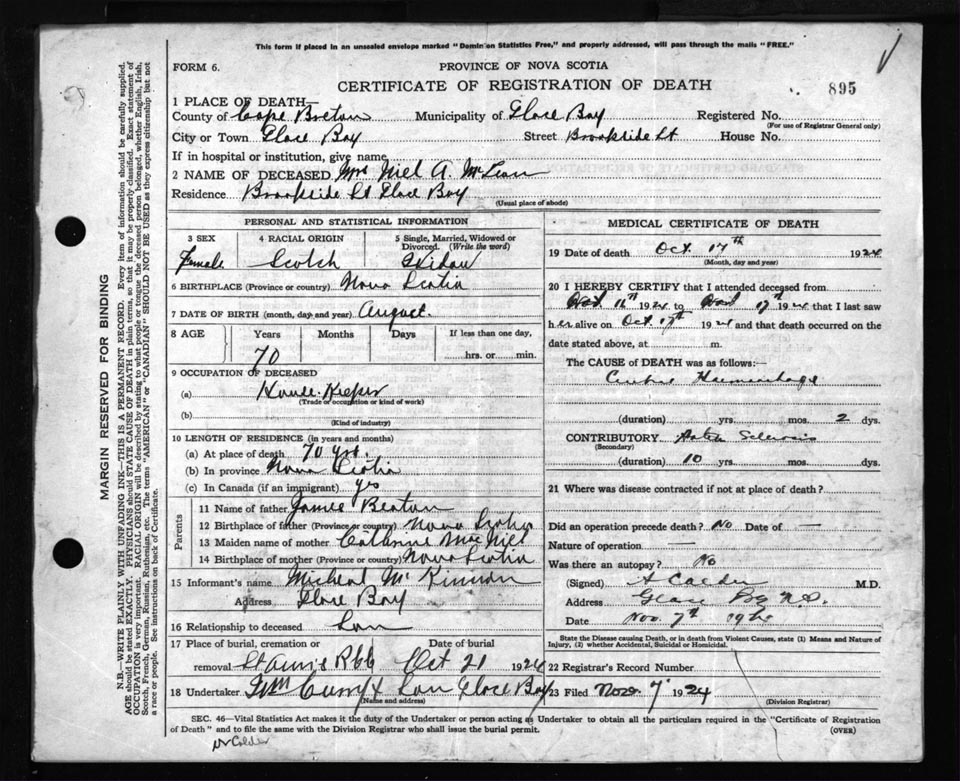 This form if placed in an unsealed envelope marked "Dominion Statistics Free," and properly addressed, will pass through the mails "FREE."
FORM 6.
PROVINCE OF NOVA SCOTIA
CERTIFICATE OF REGISTRATION OF DEATH
895
1 PLACE OF DEATH—
County of Cape Breton Municipality of Glace Bay Registered No.
(For use of Registrar General only)
City or Town Glace Bay Street Brookside St House No.
If in hospital or institution, give name
2 NAME OF DECEASED Mrs Niel A. McLean
Residence Brookside St Glace Bay
(Usual place of abode)
PERSONAL AND STATISTICAL INFORMATION
3 SEX Female
4 RACIAL ORIGIN Scotch
5 Single, Married, Widowed or Divorced. (Write the word) Widow
6 BIRTHPLACE (Province or country) Nova Scotia
7 DATE OF BIRTH (month, day and year) August
8 AGE Years Months Days If less than one day,
70 hrs. or min.
9 OCCUPATION OF DECEASED
(a) House-Keeper
(Trade or occupation or kind of work)
(b)
(Kind of industry)
10 LENGTH OF RESIDENCE (in years and months)
(a) At place of death 70 yrs.
(b) In province Nova Scotia
(c) In Canada (if an immigrant) yes
Parents
11 Name of father James Beaton
12 Birthplace of father (Province or country) Nova Scotia
13 Maiden name of mother Catherine MacNiel
14 Birthplace of mother (Province or country) Nova Scotia
15 Informant's name Micheal McKinnon
Address Glace Bay
16 Relationship to deceased Son
17 Place of burial, cremation or removal St Anns Date of burial Oct 21 1924
18 Undertaker Wm Curry & Son Glace Bay
(Name and address)
MEDICAL CERTIFICATE OF DEATH
19 Date of death Oct. 17th 1924
(Month, day and year)
20 I HEREBY CERTIFY that I attended deceased from
Oct. 16th 1924 to Oct 17th 1924 that I last saw
h er alive on Oct. 17th 1924 and that death occurred on the
date stated above, at m.
The CAUSE of DEATH was as follows:—
Haemorrhage
(duration) yrs. mos. 2 dys.
CONTRIBUTORY Sclerosis
(Secondary)
(duration) 10 yrs. mos. dys.
21 Where was disease contracted if not at place of death?
Did an operation precede death? No Date of —
Nature of operation —
Was there an autopsy? No
(Signed) A Calder M.D.
Address Glace Bay N.S.
Date Nov. 7th 1924
State the Disease causing Death, or in death from Violent Causes, state (1) Means and Nature of Injury, (2) whether Accidental, Suicidal or Homicidal.
22 Registrar's Record Number
23 Filed Nov. 7 1924
(Division Registrar)
SEC. 46—Vital Statistics Act makes it the duty of the Undertaker or person acting as Undertaker to obtain all the particulars required in the "Certificate of Registration
of Death" and to file the same with the Division Registrar who shall issue the burial permit. (OVER)
Dr Calder
MARGIN RESERVED FOR BINDING
N.B.—WRITE PLAINLY WITH UNFADING INK—THIS IS A PERMANENT RECORD. Every item of information should be carefully supplied.
AGE should be stated EXACTLY. PHYSICIANS should STATE CAUSE OF DEATH in plain terms, so that it may be properly classified. Exact statement of
OCCUPATION is very important. RACIAL ORIGIN will be described by stating to what people or tongue the deceased person belonged, whether English, Irish,
Scotch, French, German, Russian, Ruthenian, etc. The terms "AMERICAN" or "CANADIAN" SHOULD NOT BE USED as they express citizenship but not
a race or people. See instructions on back of Certificate.